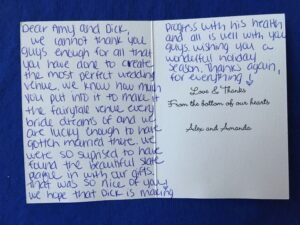 Dear Amy and Dick,
we cannot thank you
guys enough for all that
you have done to create
the most perfect wedding
venue. we know how much
you put into it to make it
the fairytale venue every
bride dreams of and we
are lucky enough to have
gotten married there. we
were so suprised to have
found the beautiful slate
plaque in with our gifts.
that was so nice of you,
we hope that Dick is making
progress with his health
and all is well with you
guys. wishing you a
wonderful holiday
season. Thanks again,
for everything
Love & Thanks
From the bottom of our hearts
Alex and Amanda